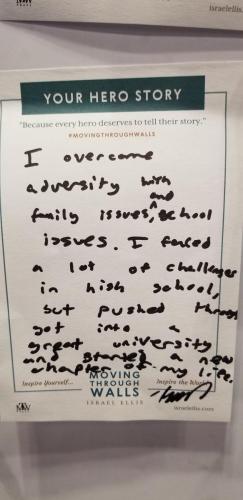 israelellis
YOUR HERO STORY
"Because every hero deserves to tell their story."
#MOVINGTHROUGHWALLS
I overcame
adversity with
and
family issues, school
issues. I faced
a lot of challenges
in high school,
but pushed through
got into a
great university
and started a new
chapter of my life.
Inspire Yourself...
MOVING
THROUGH
WALLS
ISRAEL ELLIS
Inspire the World
MW
israelellis.com